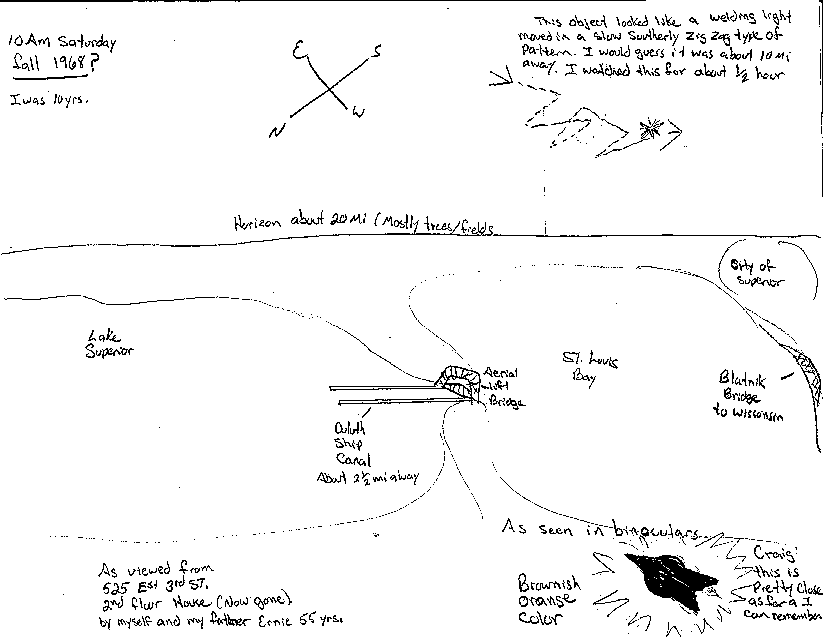 10 Am Saturday
fall 1968?
I was 10 yrs.
E
S
N
W
This object looked like a welding light
moved in a slow Southerly Zig Zag type of
Pattern. I would guess it was about 10 Mi
away. I watched this for about ½ hour
Horizon about 20 Mi (Mostly trees/fields
City of
Superior
Lake
Superior
Aerial
Lift
Bridge
St. Louis
Bay
Blatnik
Bridge
to Wisconsin
Duluth
Ship
Canal
About 2½ mi away
As viewed from
525 Est 3rd ST.
2nd floor House (Now gone)
by myself and my father Ernie 55 yrs.
As seen in binoculars
Brownish
Orange
Color
Craig
this is
Pretty Close
as far a I
can remember